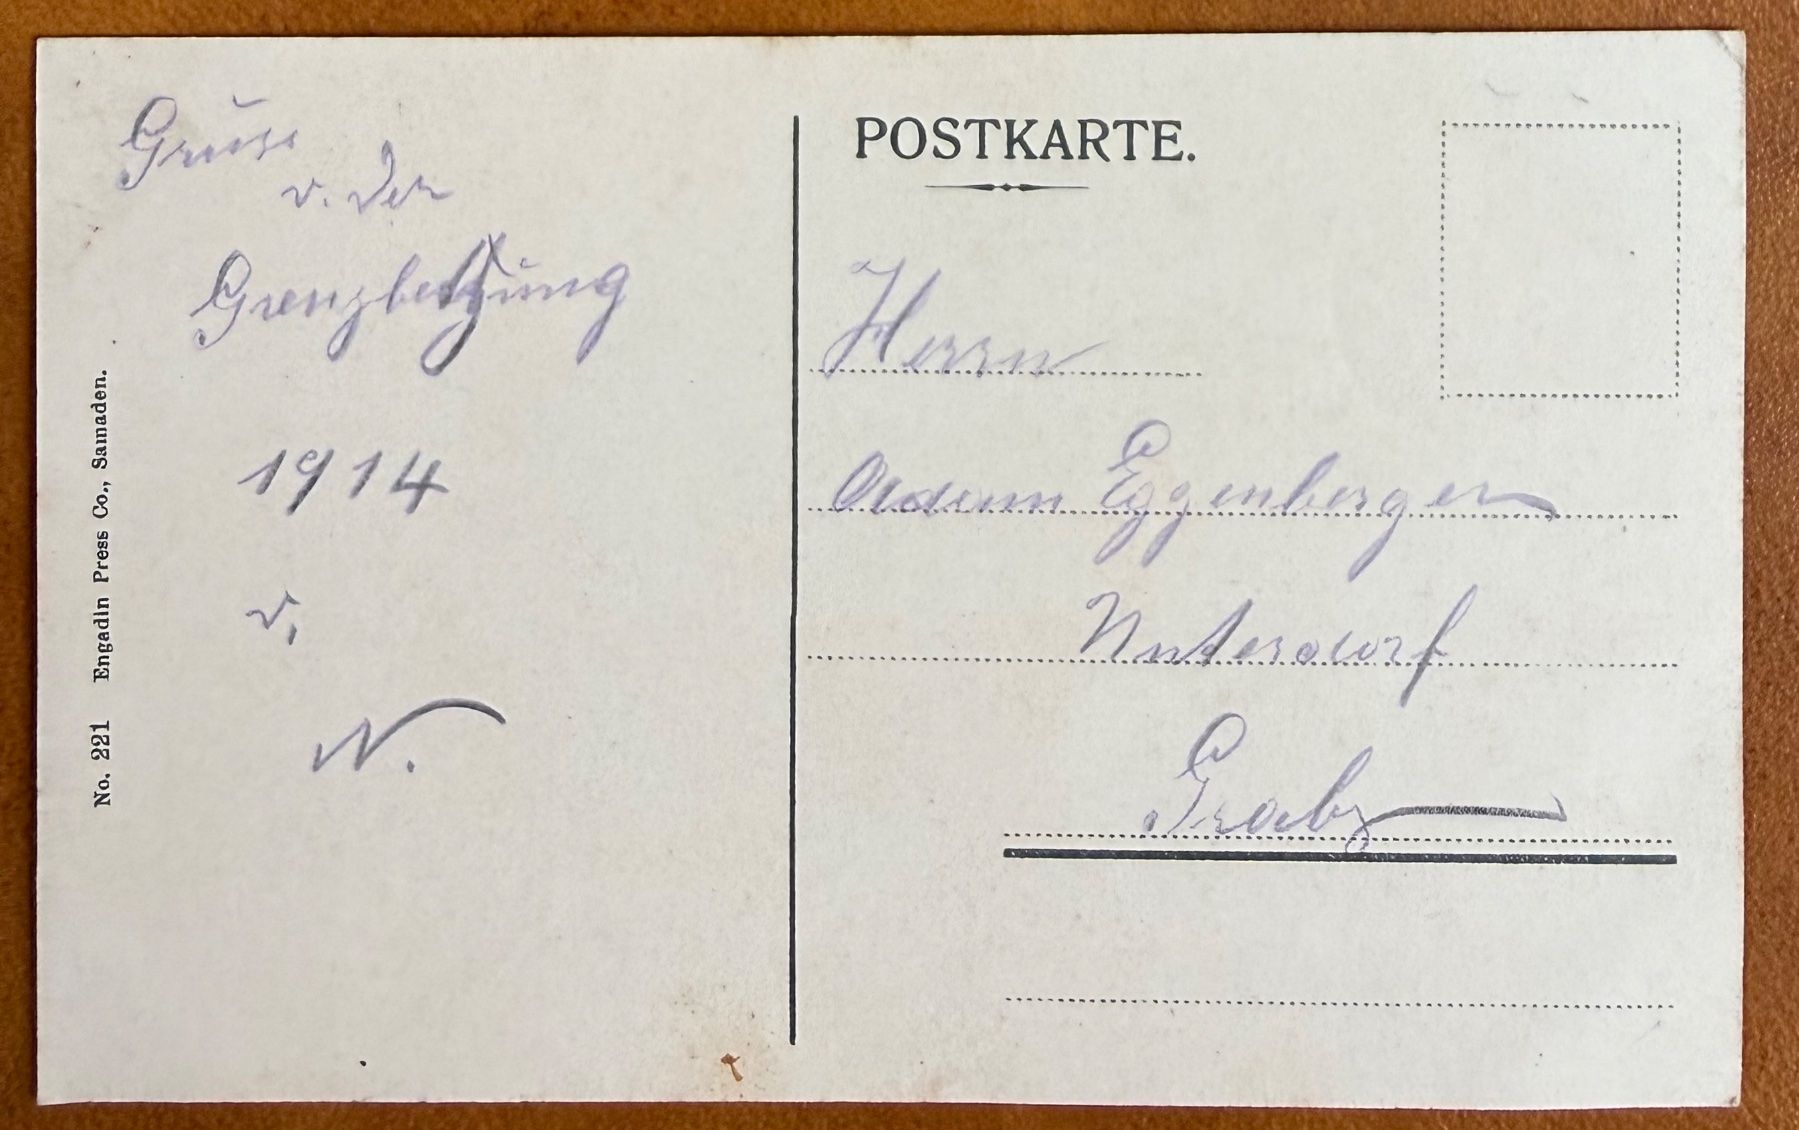 Gruss
v. der
Grenzbetzung
1914
v.
N.
No. 221 Engadin Press Co., Samaden.
POSTKARTE.
Herrn
Adam Eggenberger
Unterdorf
Grabs